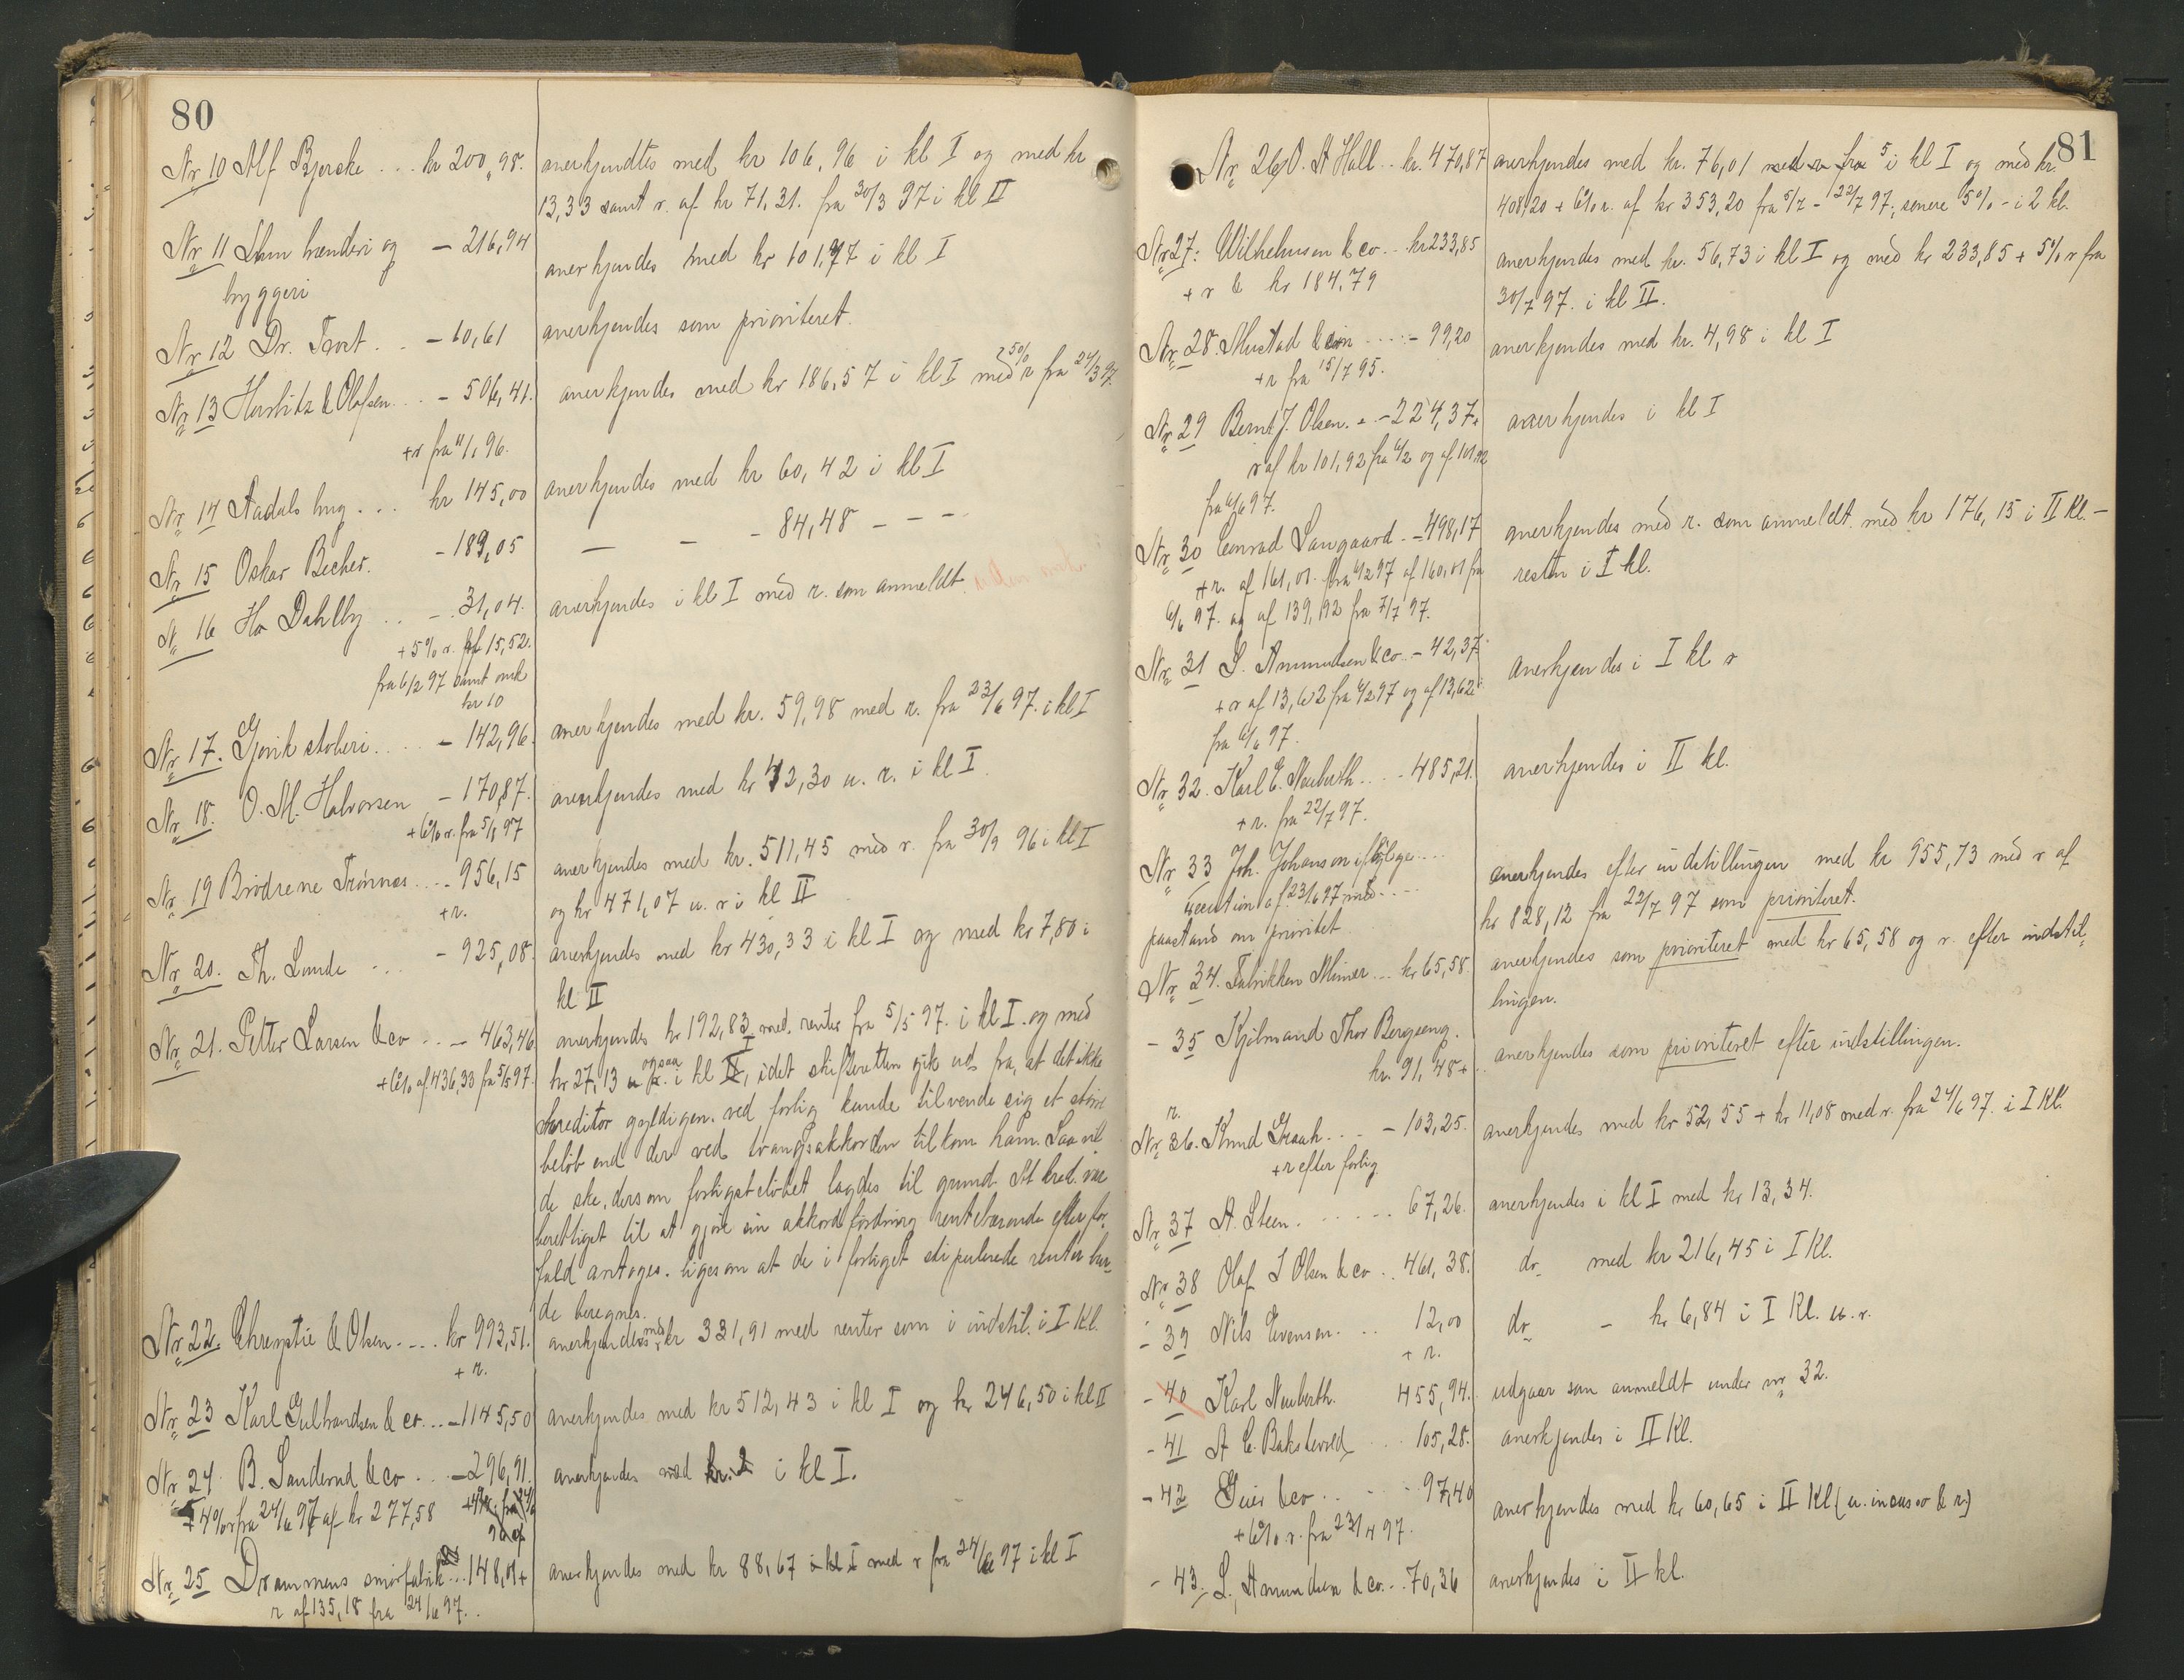 80
Nr 10 Alf Bjercke ... kr 200,98.
anerkjendtes med kr 106,96 i kl I og med kr
13,33 samt r. af kr 71,31. fra 30/3 97 i kl II
Nr 11 brænderi og - 216,94
byggeri
anerkjendes med kr 101,97 i kl I
Nr 12 Dr. - 60,61
anerkjendes som prioriteret.
Nr 13 & Olafsen.. - 506,41.
+ r fra 4/1 96.
anerkjendes med kr 186,57 i kl I med 5% r fra 24/3 97.
Nr 14 Aadals brug ... kr 145,00
anerkjendes med kr 60,42 i kl I
Nr 15 Oskar Becher. - 189,05
— - - 84,48 - - -
Nr 16 Dahlby .. - 31,04.
+ 5% r. af 15,52.
fra 6/2 97 samt omk
kr 10
anerkjendes i kl I med r. som anmeldt.
Nr 17. Gjøvik støberi .... - 142,96.
anerkjendes med kr. 59,98 med r. fra 23/6 97. i kl I
Nr 18. O. M. Halvorsen - 170,87.
+ 6% r. fra 5/1 97
anerkjendes med kr 42,30 u. r. i kl I.
Nr 19 Brødrene Trønnes ... - 956,15
+ r.
anerkjendes med kr. 511,45 med r. fra 30/9 96 i kl I
og kr 471,07 u. r i kl II
Nr 20. Th. Lunde ... - 925,08.
anerkjendes med kr 430,33 i kl I og med kr 7,80 i
kl II
Nr 21. Petter Larsen & co .. - 463,46
+ 6% af 436,33 fra 5/5 97.
anerkjendes kr 192,83 med renter fra 5/5 97. i kl I. og med
kr 27,13 ogsaa i kl I, idet skifteretten gik ud fra, at det ikke
kreditor gyldigen. ved forlig kunde tilvende sig et større
beløb end der ved tvangsakkorden tilkom ham. Saa vil
de ske, dersom forligsbeløbet lagdes til grund. At kred. var
berettiget til at gjøre sin akkordfordring rentebærende efter for¸
fald antoges. ligesom at de i forliget stipulerede renter bur¸
de beregnes.
Nr 22. & Olsen .... kr 993,51.
+ r.
anerkjendes med kr 331,91 med renter som i indstil. i I Kl.
Nr 23 Karl Gulbrandsen & co... - 1145,50
anerkjendes med kr 512,43 i kl I og kr 246,50 i kl II
Nr 24 B. Sanderud & co ... - 296,91.
+ 4% r fra 24/6 97 af kr 277,58
anerkjendes med kr. 2 i kl I.
Nr 25 Drammens smørfabrik ... 148,01 +
r af 135,18 fra 24/6 97..
anerkjendes med kr 88,67 i kl I med r fra 24/6 97 i kl I
81
Nr 26 O. A Hall .. kr. 470,87
anerkjendes med kr. 76,01 i kl I og med kr.
408,20 + 6% r. af kr 353,20 fra 5/7 - 22/7 97, senere 5% - i 2 kl.
Nr 27: Wilhelmsen & co ... kr 233,85
+ r & kr 184,79
anerkjendes med kr. 56,73 i kl I og med kr 233,85 + 5% r fra
30/7 97. i kl II.
Nr 28. Mustad & søn .... - 99,20
+ r fra 15/7 95.
anerkjendes med kr. 4,98 i kl I
Nr 29 Bernt J. Olsen. .. - 224,37 +
r af kr 101,92 fra 6/2 og af 101,92
fra 6/6 97.
anerkjendes i kl I
Nr 30 Conrad Langaard - - 498,17
+ r. af 161,01. fra 6/2 97 af 160,01 fra
6/6 97. og af 139,92 fra 7/7 97.
anerkjendes med r. som anmeldt. med kr 176,15 i II Kl. -
resten i I kl.
Nr 31 S. Amundsen & co - 42,37.
+ r af 13,62 fra 6/2 97 og af 13,62
fra 6/6 97.
anerkjendes i I kl r
Nr 32. Karl E. Neuberth .... - 485,21.
+ r. fra 22/7 97.
anerkjendes i II kl.
Nr 33 Joh. Johanson ifølge ....
execution af 23/6 97 med ....
paastand om prioritet
anerkjendes efter indstillingen med kr 955,73 med r af
kr 828,12 fra 22/7 97 som prioriteret.
Nr 34. Fabrikken Mimer ... kr 65,58.
anerkjendes som prioriteret med kr 65,58 og r. efter indstil¸
lingen.
- 35 Kjøbmand Thor Bergseng.
kr. 91,48 +
r.
anerkjendes som prioriteret efter indstillingen.
Nr 36. Knud Graah ... - 103,25.
+ r efter forlig
anerkjendes med kr 52,55 + kr 11,08 med r. fra 24/6 97. i I Kl.
Nr 37 A. Steen ...... 67,26.
anerkjendes i kl I med kr 13,34.
Nr 38 Olaf S Olsen & co .. 461,38.
do med kr 216,45 i I Kl.
- 39 Nils Evensen ... 12,00
+ r.
do - kr 6,84 i I Kl. u. r.
- 40 Karl Neuberth. 455,94.
udgaar som anmeldt under nr 32.
- 41 A E. Bakstevold ... 105,28.
anerkjendes i II Kl.
- 42 Geier & co ..... 97,40
+ 6% r. fra 23/4 97.
anerkjendes med kr 60,65 i II Kl (u. incasso & r.)
- 43. S. Amundsen & co ... 70,36
anerkjendes i II kl.